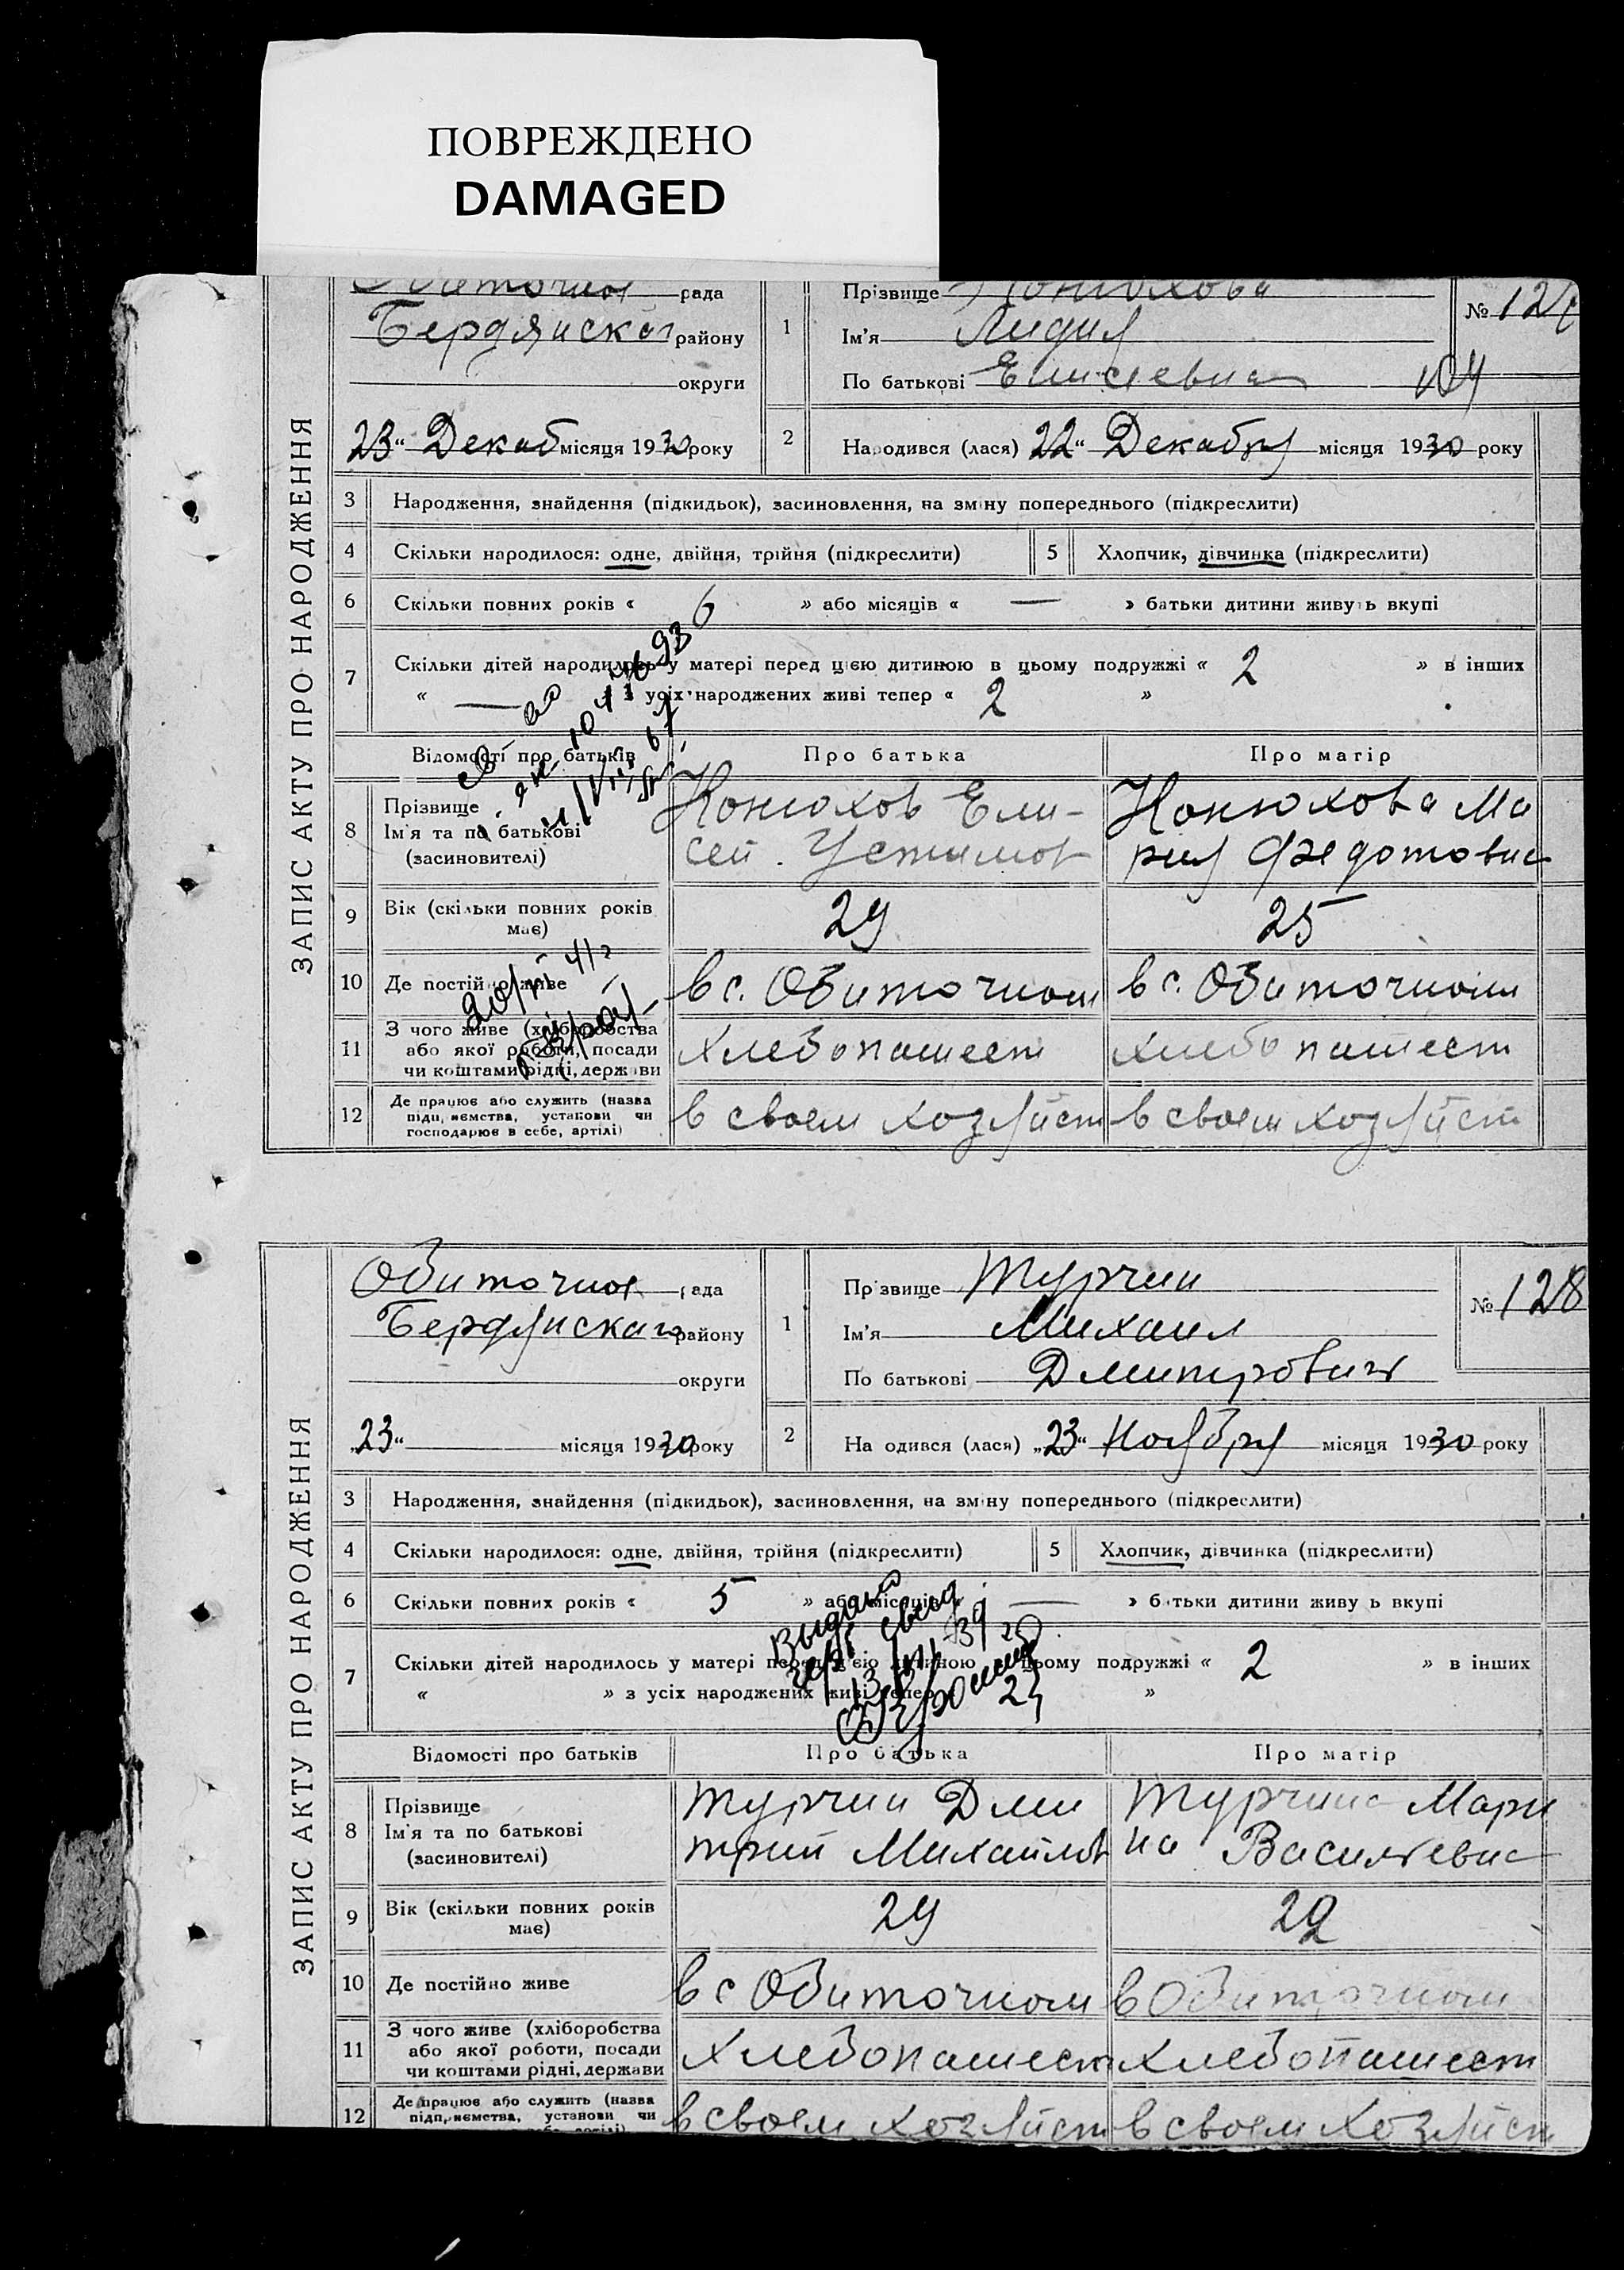 ПОВРЕЖДЕНО
DAMAGED
ЗАПИС АКТУ ПРО НАРОДЖЕННЯ
Обиточная рада
Бердянского району
округи
23 " Декаб місяця 1930 року
1
Прізвище Конюхова
Ім'я Лидия
По батькові Елисеевна
№ 12
104
2
Народився (лася) 22 " Декабря місяця 1930 року
3 Народження, знайдення (підкидьок), засиновлення, на зміну попереднього (підкреслити)
4 Скільки народилося: одне, двійня, трійня (підкреслити) 5 Хлопчик, дівчинка (підкреслити)
6 Скільки повних років « 6 » або місяців « — » батьки дитини живуть вкупі
7 Скільки дітей народилось у матері перед цією дитиною в цьому подружжі « 2 » в інших
« — » з усіх народжених живі тепер « 2 »
Відомості про батьків Про батька Про матір
8 Прізвище
Ім'я та по батькові
(засиновителі)
Конюхов Ели-
сей Устимов
Конюхова Ма
рия Федотовна
9 Вік (скільки повних років
має)
29 25
10 Де постійно живе в с. Обиточном в с. Обиточном
20/ 41 г
11 З чого живе (хліборобства
або якої роботи, посади
чи коштами рідні, держави
хлебопашест хлебопашест
12 Де працює або служить (назва
підприємства, установи чи
господарює в себе, артілі)
в своем хозяйст в своем хозяйст
ЗАПИС АКТУ ПРО НАРОДЖЕННЯ
Обиточная рада
Бердянского району
округи
„23 " місяця 1930 року
1
Прізвище Турчин
Ім'я Михаил
По батькові Дмитрович
№ 128
2
Народився (лася) „23 " Ноября місяця 1930 року
3 Народження, знайдення (підкидьок), засиновлення, на зміну попереднього (підкреслити)
4 Скільки народилося: одне, двійня, трійня (підкреслити) 5 Хлопчик, дівчинка (підкреслити)
6 Скільки повних років « 5 » або місяців « — » батьки дитини живуть вкупі
7 Скільки дітей народилось у матері перед цією дитиною в цьому подружжі « 2 » в інших
« » з усіх народжених живі тепер 2 »
Выдана
свид
Відомості про батьків Про батька Про матір
8 Прізвище
Ім'я та по батькові
(засиновителі)
Турчин Дми
трий Михайлов
Турчина Мари
на Васильевна
9 Вік (скільки повних років
має)
29 29
10 Де постійно живе в с Обиточном в Обиточном
11 З чого живе (хліборобства
або якої роботи, посади
чи коштами рідні, держави
Хлебопашест Хлебопашест
12 Де працює або служить (назва
підприємства, установи чи
в своем хозяйст в своем хозяйст